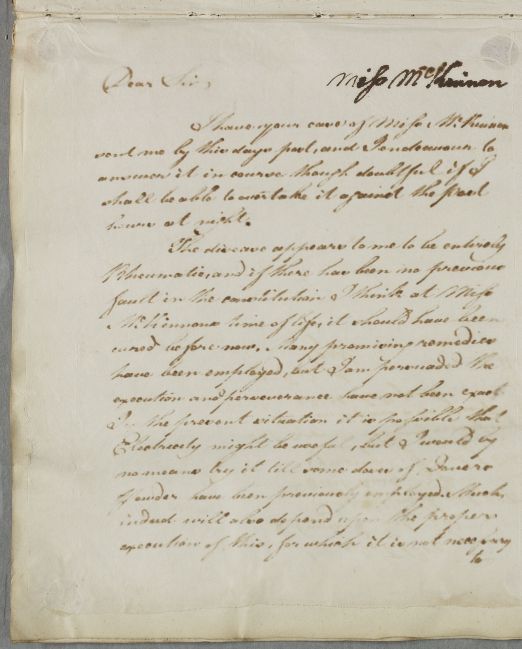 Miss McKinnon
Dear Sir,
I have your case of Miss McKinnon
sent me by this days post, and I endeavour to
answer it in course though doubtful if I
shall be able to overtake it against the Post
hour at night.
The disease appears to me to be entirely
Rheumatic, and if there has been no previous
fault in the constitution I think at Miss
McKinnons time of life, it should have been
cured before now. Many promising remedies
have been employed, but I am persuaded the
execution and perseverance have not been exact
In the present situation it is possible that
Electricity might be useful, but I would by
no means try it till some doses of Dovers
Powder have been previously employed. Much,
indeed will also depend upon the proper
execution of this, for which it is not necessary
to